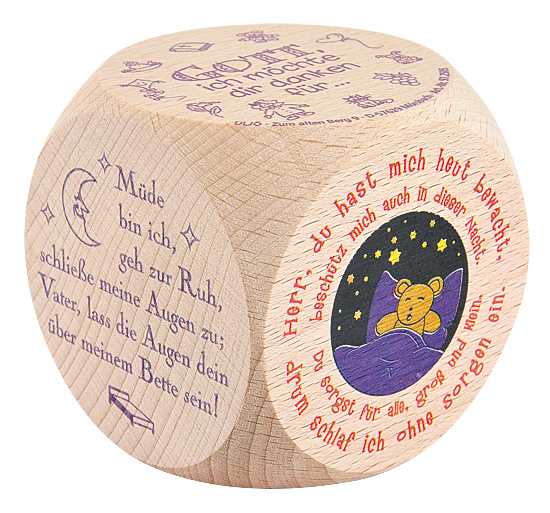 GOTT,
ich möchte
dir danken
für ...
ULJÖ · Zum alten Berg 9 · D-57629
Müde
bin ich,
geh zur Ruh,
schließe meine Augen zu;
Vater, lass die Augen dein
über meinem Bette sein!
Herr, du hast mich heut bewacht,
beschütz mich auch in dieser Nacht.
Du sorgst für alle, groß und klein.
Drum schlaf ich ohne Sorgen ein.